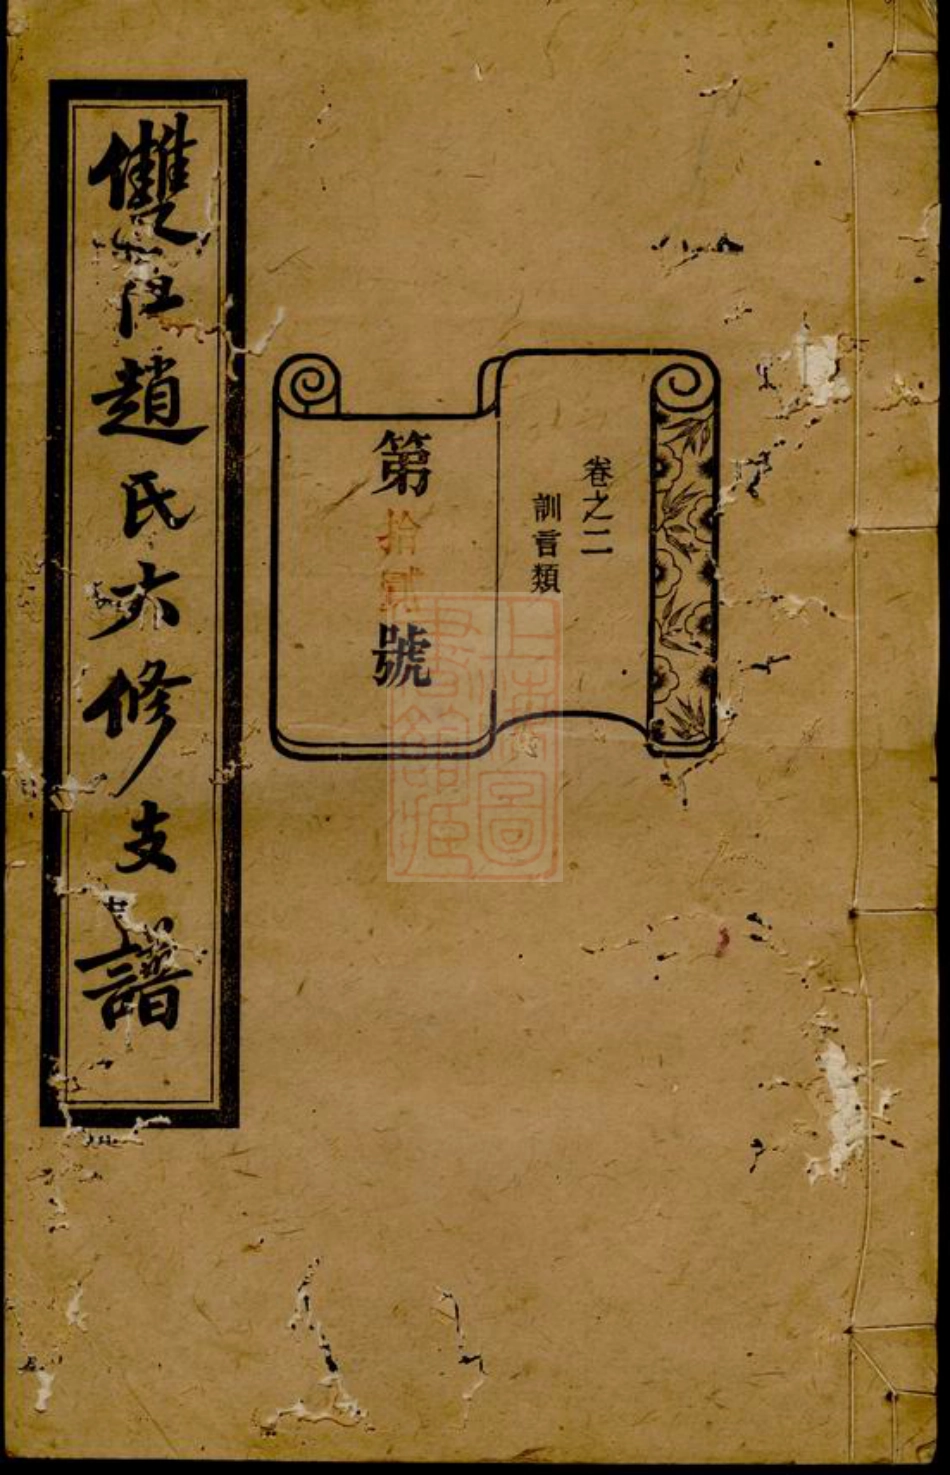 卷之二
訓言類
第拾貳號
雙江趙氏六修支譜
上海圖書館藏